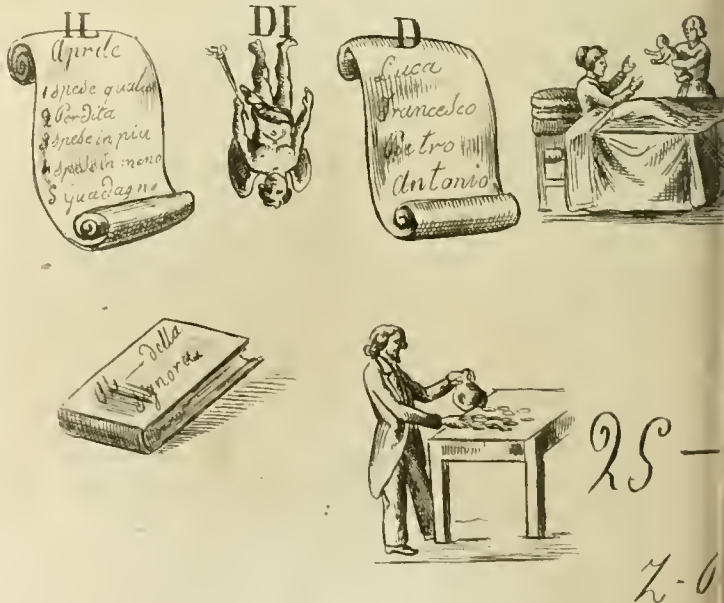 IL
Aprile
1 spese
2 Perdita
3 spese in piu
4 spese in meno
5 guadagno
DI
D
Luca
Francesco
Pietro
Antonio
della
Signoretta
25 —